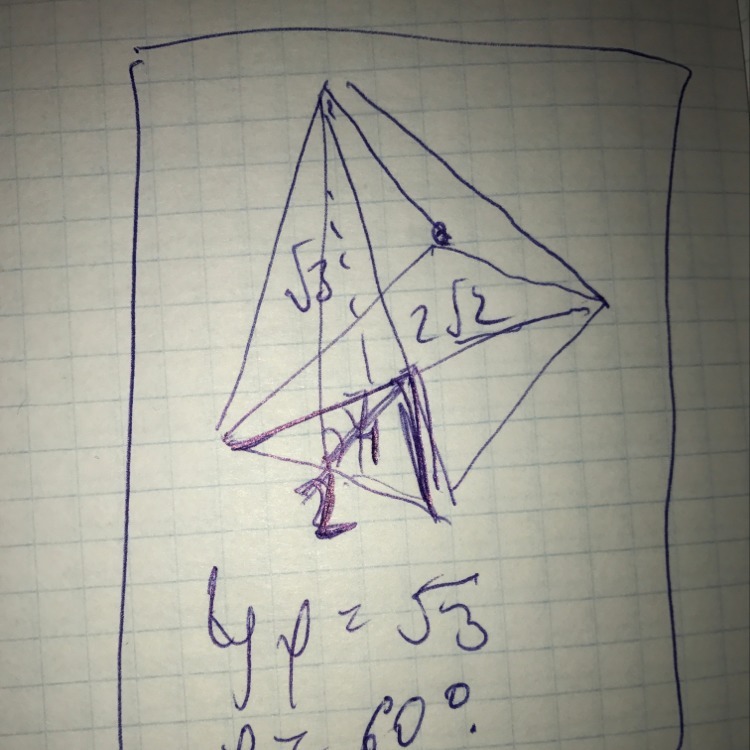 √3
2√2
2
tg φ = √3
φ = 60°.